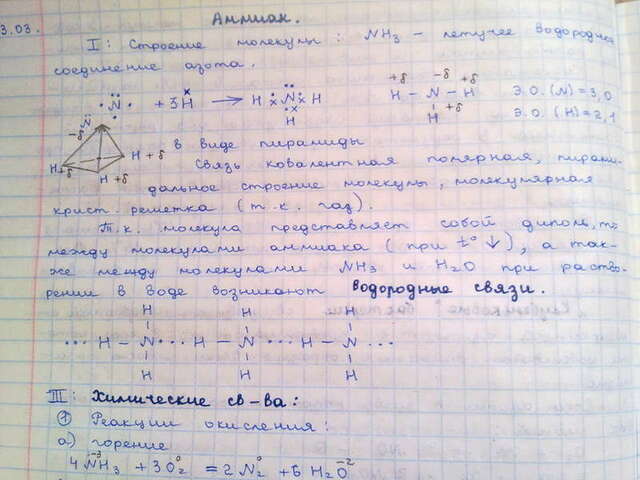 3.03.
Аммиак.
I: Строение молекулы: NH₃ – летучее водородное
соединение азота.
·N̈· + 3H → H ×N̈× H
H
+δ −δ +δ
H – N – H
H +δ
Э.О. (N) = 3,0
Э.О. (H) = 2,1
−δ N
H +δ
H +δ
H +δ
в виде пирамиды
связь ковалентная полярная, пирами-
дальное строение молекулы, молекулярная
крист. решетка (т.к. газ).
Т.к. молекула представляет собой диполь, то
между молекулами аммиака (при t° ↓), а так-
же между молекулами NH₃ и H₂O при раство-
рении в воде возникают водородные связи.
H H H
··· H – N ··· H – N ··· H – N ...
H H H
III: Химические св-ва:
① Реакции окисления:
а) горение
−3 0 0 −2
4NH₃ + 3O₂ = 2N₂ + 6H₂O